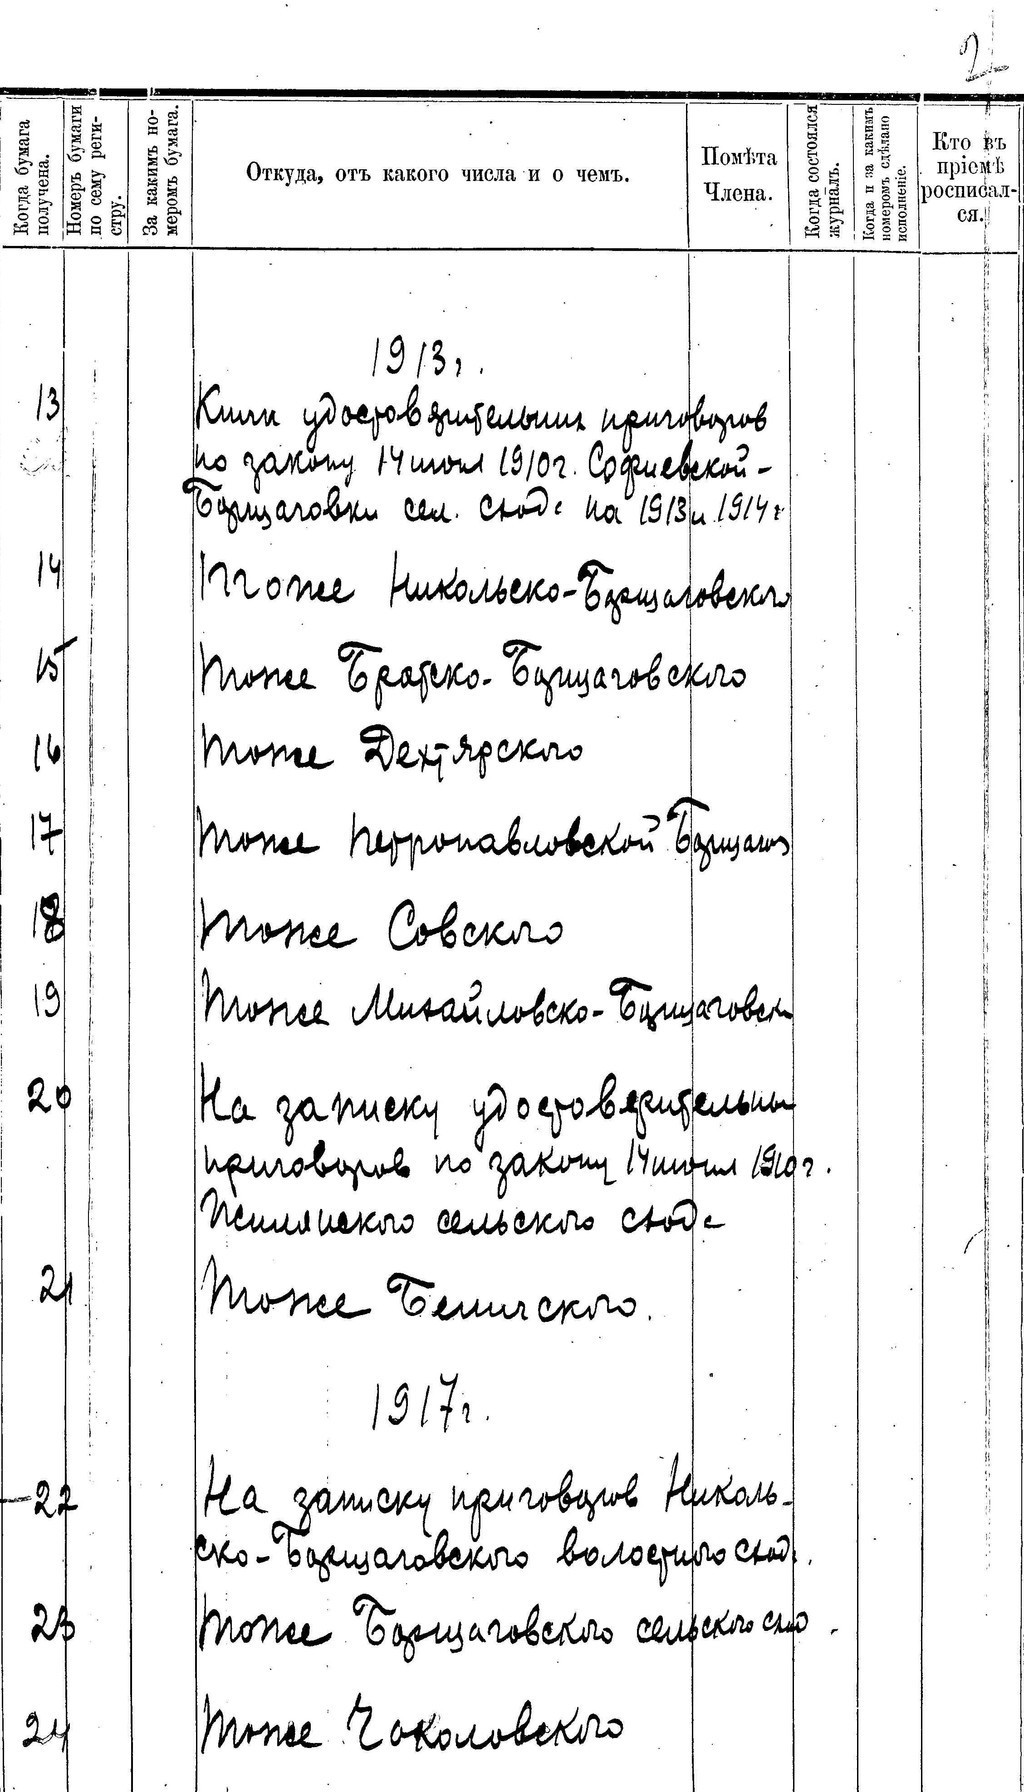 2
Когда бумага
получена.
Номеръ бумаги
по сему реги-
стру.
За какимъ но-
меромъ бумага.
Откуда, отъ какого числа и о чемъ.
Помѣта
Члена.
Когда состоялся
журналъ.
Когда и за какимъ
номеромъ сдѣлано
исполненіе.
Кто въ
пріемѣ
росписал-
ся.
1913 г.
13
Книги удостоверительных приговоров
по закону 14 июня 1910 г. Софиевской-
Борщаговки сел. схода на 1913 и 1914 г
14
Тоже Никольско-Борщаговского
15
Тоже Братско-Борщаговского
16
Тоже Дехтярского
17
Тоже Петропавловской Борщагов
18
Тоже Совского
19
Тоже Михайловско-Борщаговск
20
На записку удостоверительны
приговоров по закону 14 июня 1910 г.
Жилянского сельского схода
21
Тоже Беличского.
1917 г.
22
На записку приговоров Николь-
ско-Борщаговского волостного сход.
23
Тоже Борщаговского сельского схо
24
Тоже Чоколовского